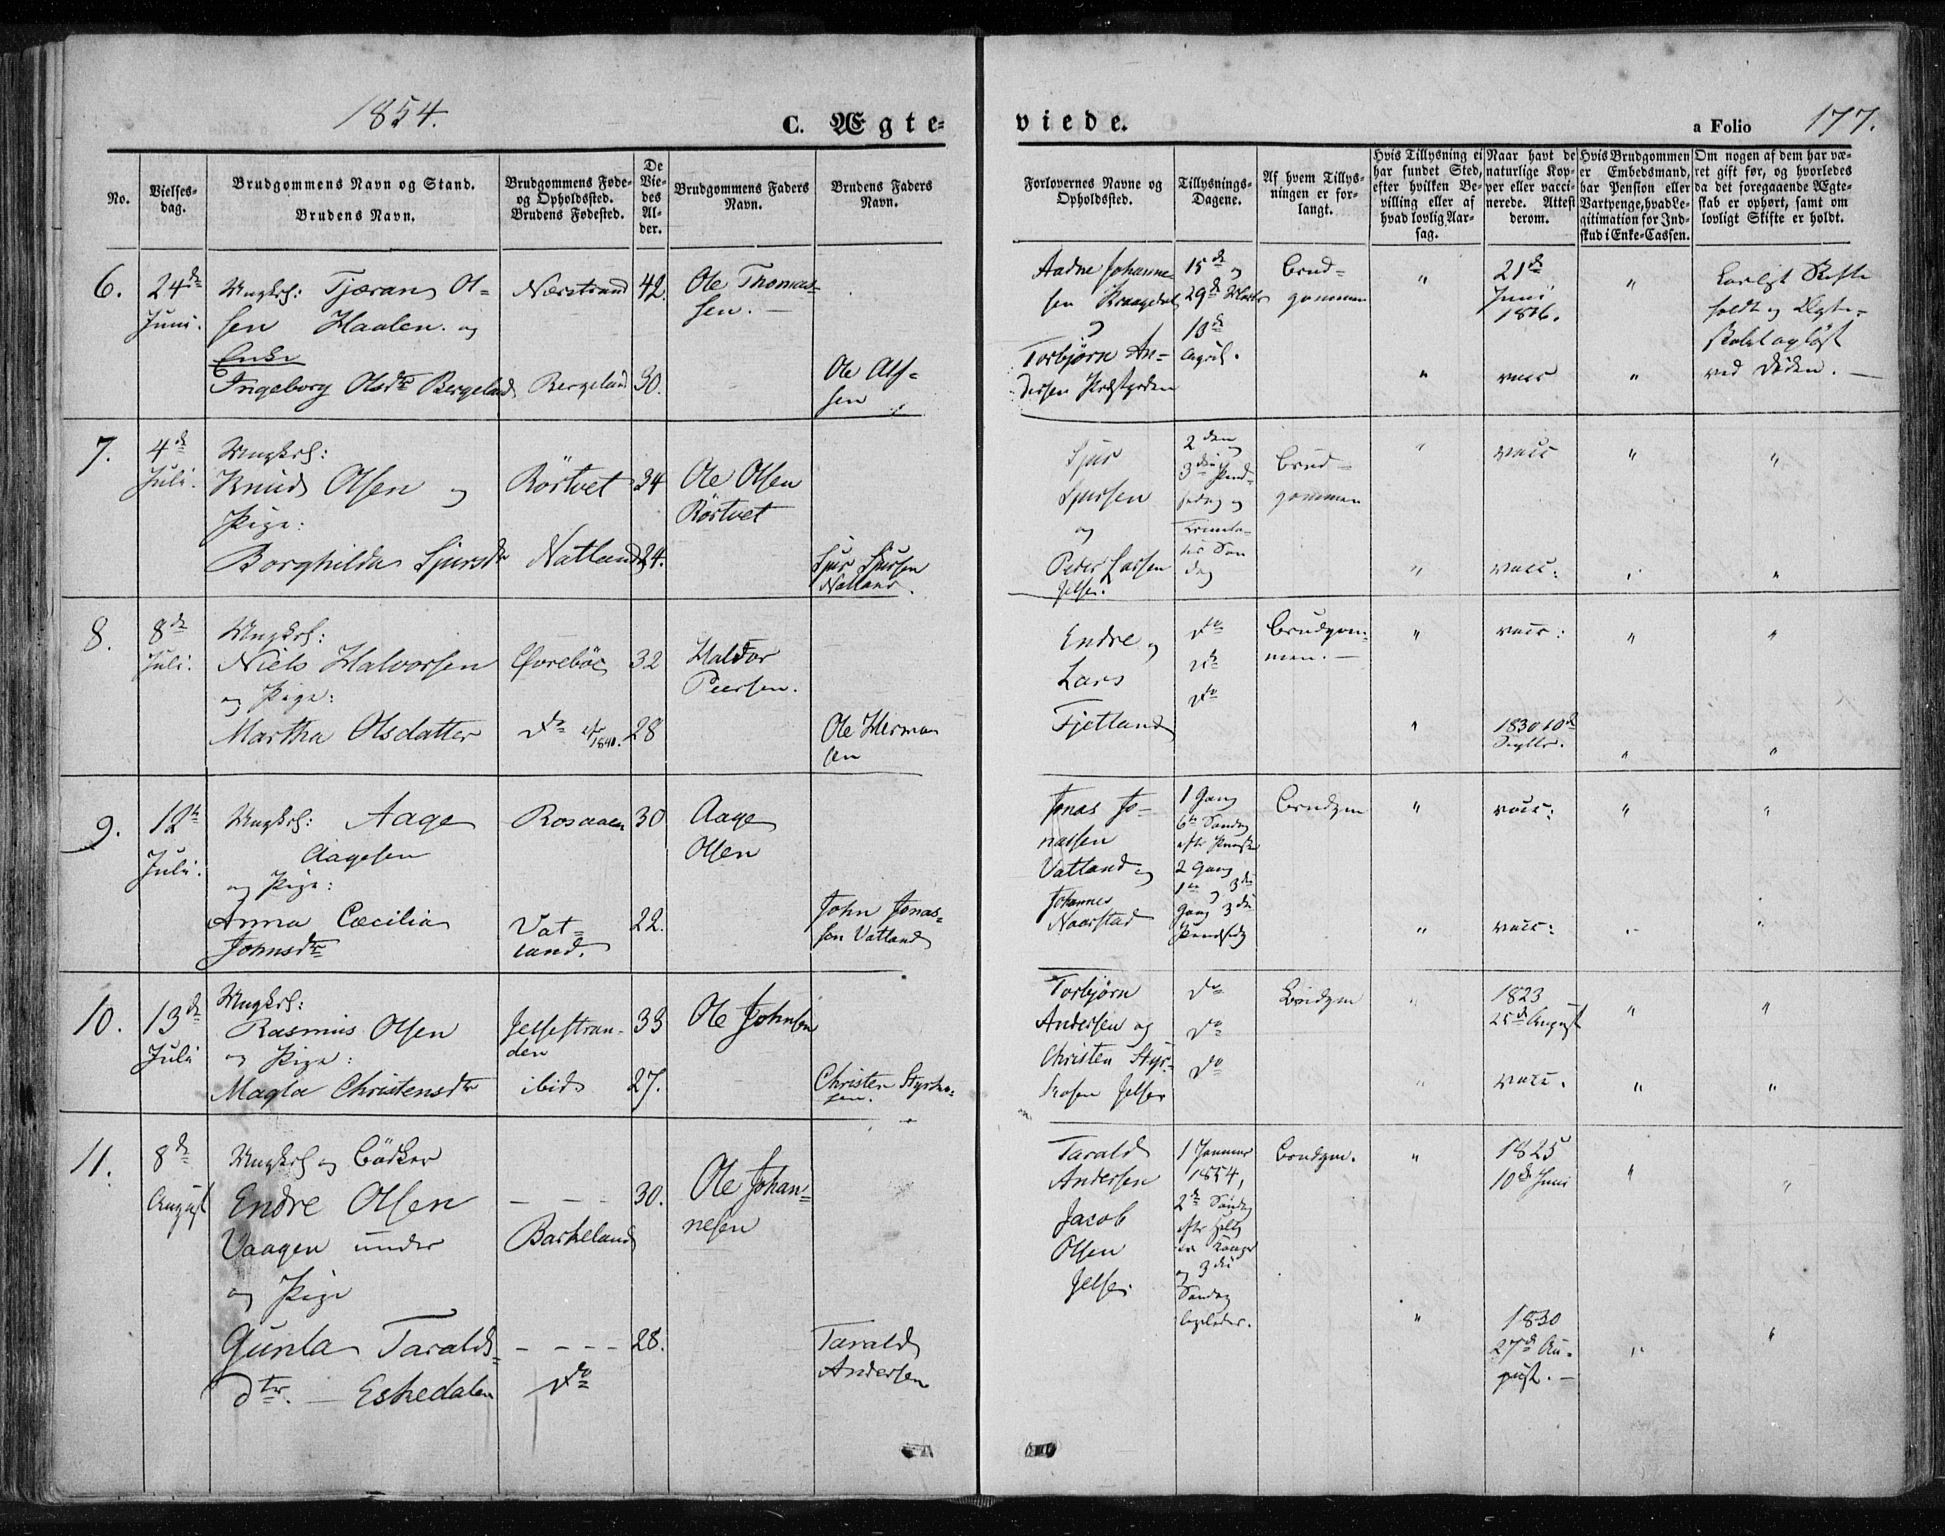 1854.
C. Ægte-
viede.
a Folio 177.
No.
Vielses-
dag.
Brudgommens Navn og Stand.
Brudens Navn.
Brudgommens Føde-
og Opholdsted.
Brudens Fødested.
De
Vie-
des
Al-
der.
Brudgommens Faders
Navn.
Brudens Faders
Navn.
Forlovernes Navne og
Opholdsted.
Tillysnings-
Dagene.
Af hvem Tillys-
ningen er for-
langt.
Hvis Tillysning ei
har fundet Sted,
efter hvilken Be-
villing eller af
hvad lovlig Aar-
sag.
Naar havt de
naturlige Kop-
per eller vacci-
nerede. Attest
derom.
Hvis Brudgommen
er Embedsmand,
har Pension eller
Vartpenge, hvad Le-
gitimation for Ind-
skud i Enke-Cassen.
Om nogen af dem har væ-
ret gift før, og hvorledes
da det foregaaende Ægte-
skab er ophørt, samt om
lovligt Skifte er holdt.
6.
24de
Juni.
Ungkrl: Tjæran Ol-
sen Haalen. og
Enke
Ingeborg Olsdtr Bergeland
Nærstrand
Bergeland
42.
30.
Ole Thomas-
sen. —
Ole Ol-
sen
Aadne Johanne-
sen
Torbjørn An-
dersen Præstgarden
15de og
29de Marts
10de
April.
Brud-
gommen
"
"
21de
Juni
1816.
vacc
"
"
Lovligt Skifte
holdt og Ægte-
skabet opløst
ved Døden. —
7.
4de
Juli.
Ungkrl:
Knud Olsen og
Pige:
Borghilda Sjursdtr
Rörtvet
Natland
34
24.
Ole Olsen
Rörtvet
Sjur Sjursen
Natland.
Sjur
Sjursen
og
Peder Larsen
Jelse.
2den
3die Pind-
sedag og
Trinita-
tis Søn
dag
Brud-
gommen
"
"
vacc
vacc:
"
"
"
"
8.
8de
Juli.
Ungkrl:
Niels Halvorsen
og Pige:
Martha Olsdatter
Øvreböe
do
1840.
32
28
Haldor
Peersen.
Ole Herman
sen
Endre og
Lars
Fjetland
do
do
do
Brudgom-
men. —
"
"
vacc:
1830 10de
Septbr.
"
"
"
"
9.
12te
Juli.
Ungkrl: Aage
Aagesen
og Pige:
Anna Cæcilia
Johnsdtr
Rosaaen
Vat-
land.
30
22.
Aage
Olsen
John Jonas-
sen Vatland
Jonas Jo-
nassen
Vatland og
Johannes
Naarstad
1 Gang
6te Søndag
efter Pindse
2 Gang
1te og 3die
Gang 3die
Pindsedg
Brudgm
"
"
vacc:
vacc:
"
"
"
"
10.
13de
Juli
Ungkrl:
Rasmus Olsen
og Pige:
Magla Christensdtr
Jelsestran-
den
ibid
33
27.
Ole Johnsen
Christen Styrka-
sen.
Torbjørn
Andersen og
Christen Styr-
kasen Jelse
do
do
do
Brudgm
"
"
1823
25de August
vacc.
"
"
"
"
11.
8de
August
Ungkrl og Bödker
Endre Olsen
Vaagen under
og Pige
Gunla Taralds-
dtr. — Eskedalen
– – –
Barkeland
– – – –
do
30.
28.
Ole Johan-
nesen
Tarald
Andersen
Tarald
Andersen
Jacob
Olsen
Jelse
1 Januar
1854,
2de Søndag
efter Hellig
tre Konger
og 3die
Søndag
ligeledes.
Brudgm.
"
"
1825
10de Juni
1830
27de Au-
gust. —
"
"
"
"